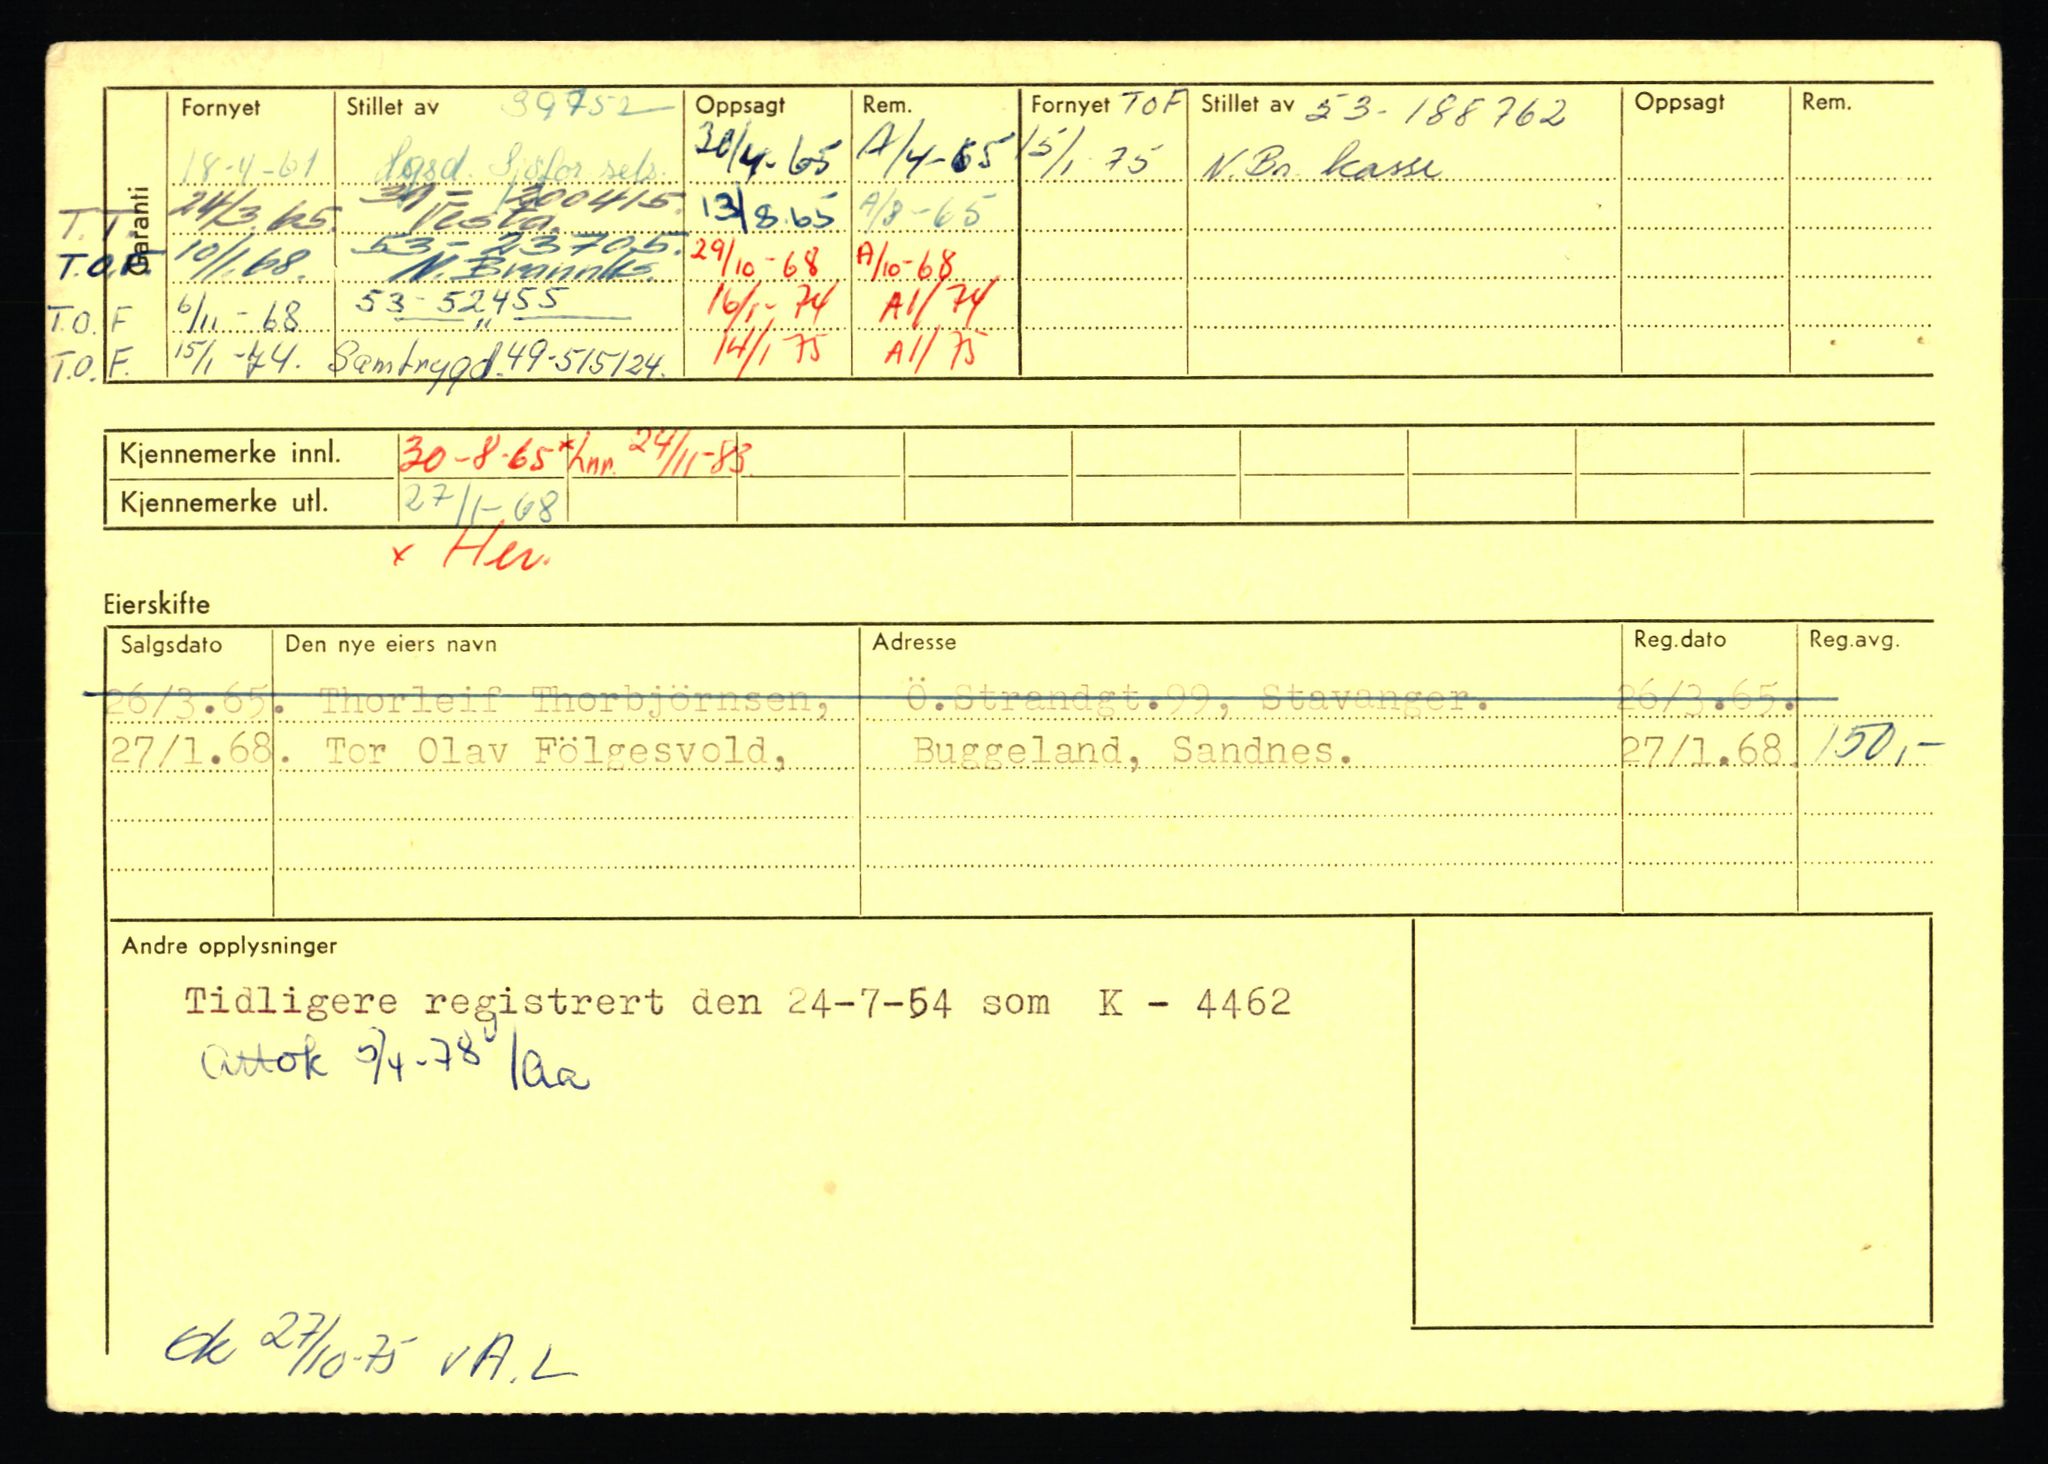 Garanti
Fornyet Stillet av 39752 Oppsagt Rem. Fornyet TOF Stillet av 53-188762 Oppsagt Rem.
18-4-61 Hgsd. Sjøfor.sels. 30/4-65 A/4-65 15/1 75 N.Br. kasse
T.T. 24/3.65. 300415. Vesta. 13/8.65 A/8-65
T.O.F. 10/1.68. 53-23705. N. Brannks. 29/10-68 A/10-68
T.O.F 6/11-68 53-52455 " 16/1-74 A1/74
T.O.F. 15/1-74. Samtrygd. 49-515124. 14/1 75 A1/75
Kjennemerke innl. 30-8-65 x Lnr. 24/11-83.
Kjennemerke utl. 27/1-68
x Her.
Eierskifte
Salgsdato Den nye eiers navn Adresse Reg.dato Reg.avg.
26/3.65. Thorleif Thorbjörnsen, Ö.Strandgt.99, Stavanger. 26/3.65.
27/1.68. Tor Olav Fölgesvold, Buggeland, Sandnes. 27/1.68. 150,-
Andre opplysninger
Tidligere registrert den 24-7-54 som K - 4462
Attok 5/4-78 /Aa
ok 27/10-75 v A.L